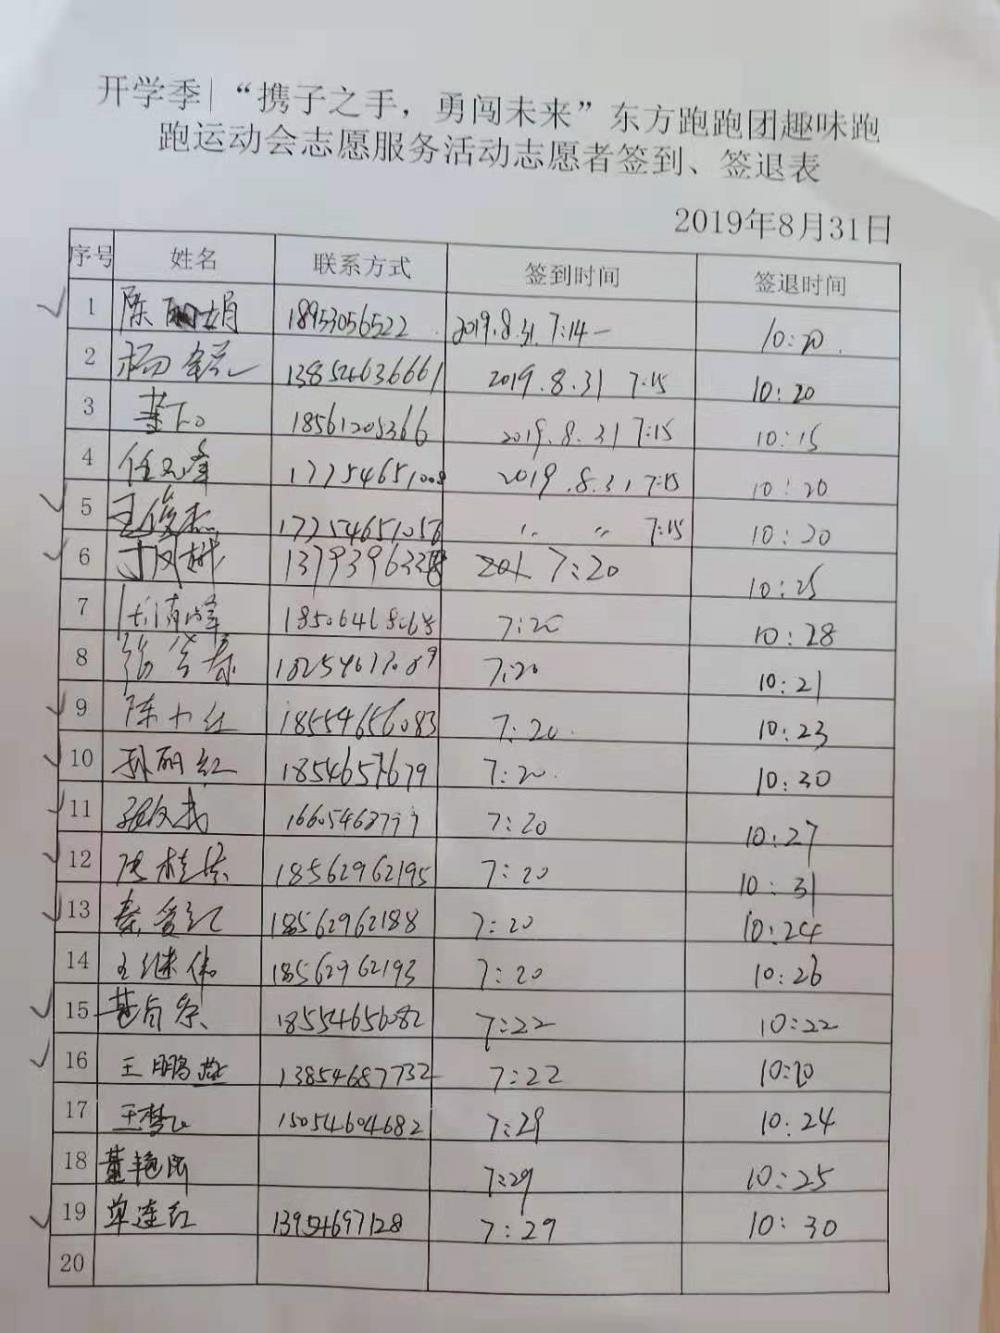 开学季|“携子之手，勇闯未来”东方跑跑团趣味跑
跑运动会志愿服务活动志愿者签到、签退表
2019年8月31日
序号 姓名 联系方式 签到时间 签退时间
1 陈丽娟 18953056522 2019.8.31 7:14 10:20
2 杨 13854636661 2019.8.31 7:15 10:20
3 18561205366 2019.8.31 7:15 10:15
4 任 17754651008 2019.8.31 7:15 10:20
5 王俊杰 17754651056 〃 〃 7:15 10:20
6 7:20 10:25
7 7:20 10:28
8 张 7:20 10:21
9 陈 红 18554656083 7:20 10:23
10 孙丽红 7:20 10:30
11 7:20 10:27
12 18562962195 7:20 10:31
13 秦爱红 18562962188 7:20 10:24
14 王继伟 18562962193 7:20 10:26
15 18554656082 7:22 10:22
16 王鹏燕 13854687732 7:22 10:20
17 王梦 15054604682 7:29 10:24
18 董艳 7:29 10:25
19 单连红 13954697128 7:29 10:30
20